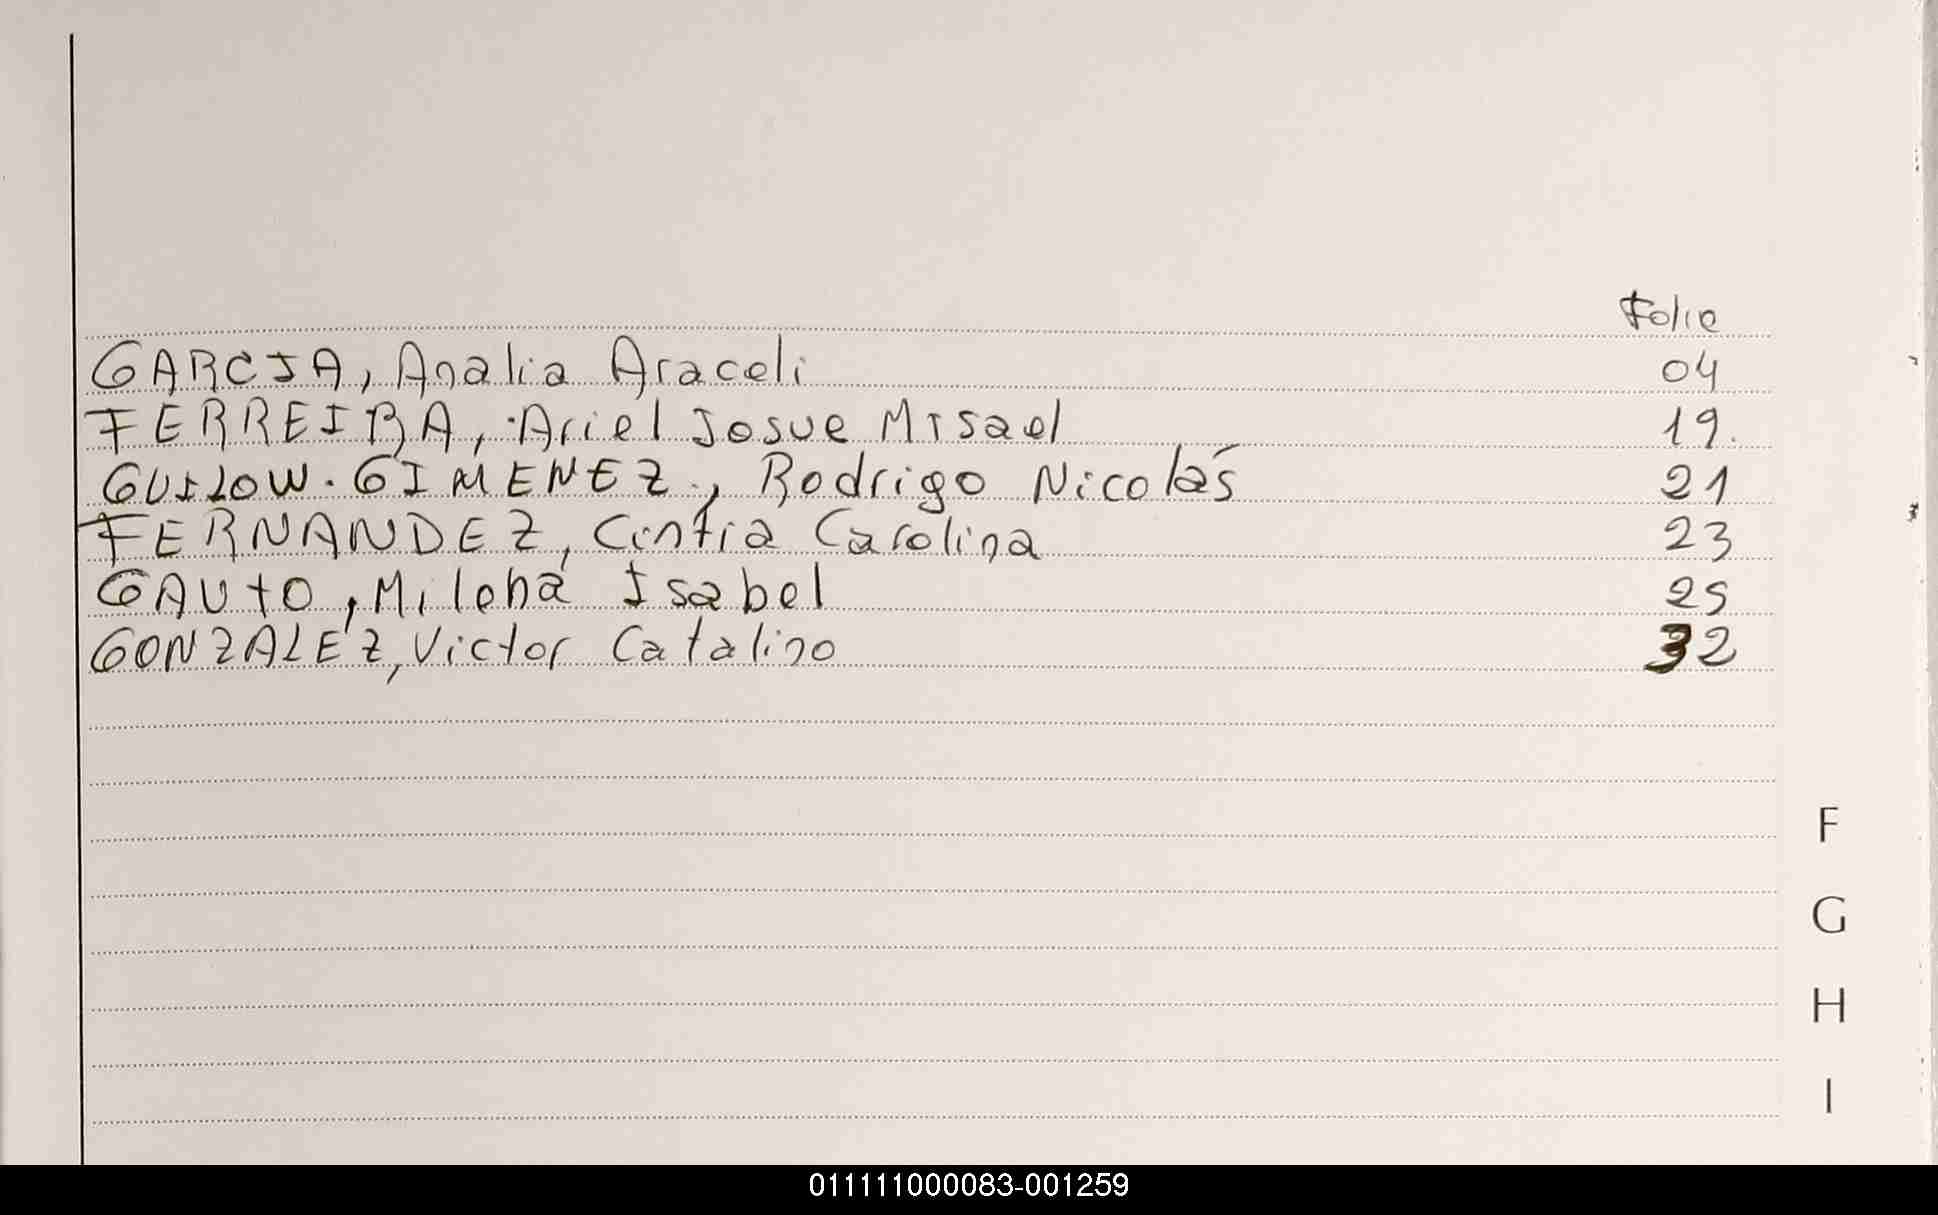 Folio
GARCIA, Analia Araceli 04
FERREIRA, Ariel Josue Misael 19.
GIMENEZ, Rodrigo Nicolás 21
FERNANDEZ, Cintia Carolina 23
GAUTO, Milena Isabel 25
GONZALEZ, Victor Catalino 32
F
G
H
I
011111000083-001259